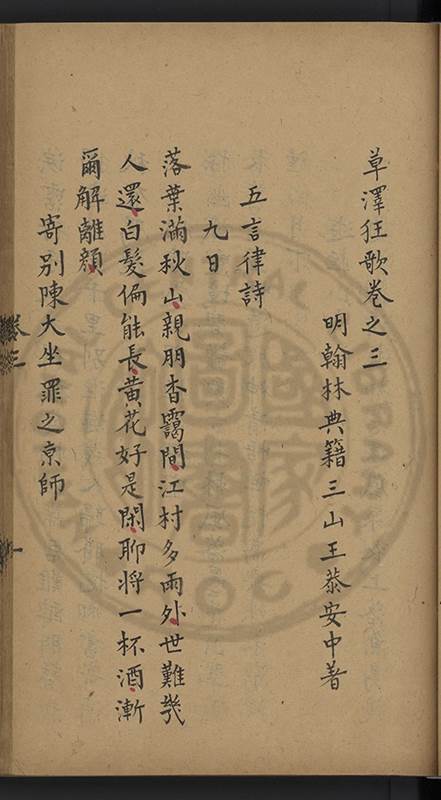 草澤狂歌卷之三
明翰林典籍三山王恭安中著
五言律詩
九日
落葉滿秋山親朋杳靄間江村多雨外世難幾
人還白髮偏能長黃花好是閑聊將一杯酒漸
爾解離顏
寄別陳大坐罪之京師
卷三
一